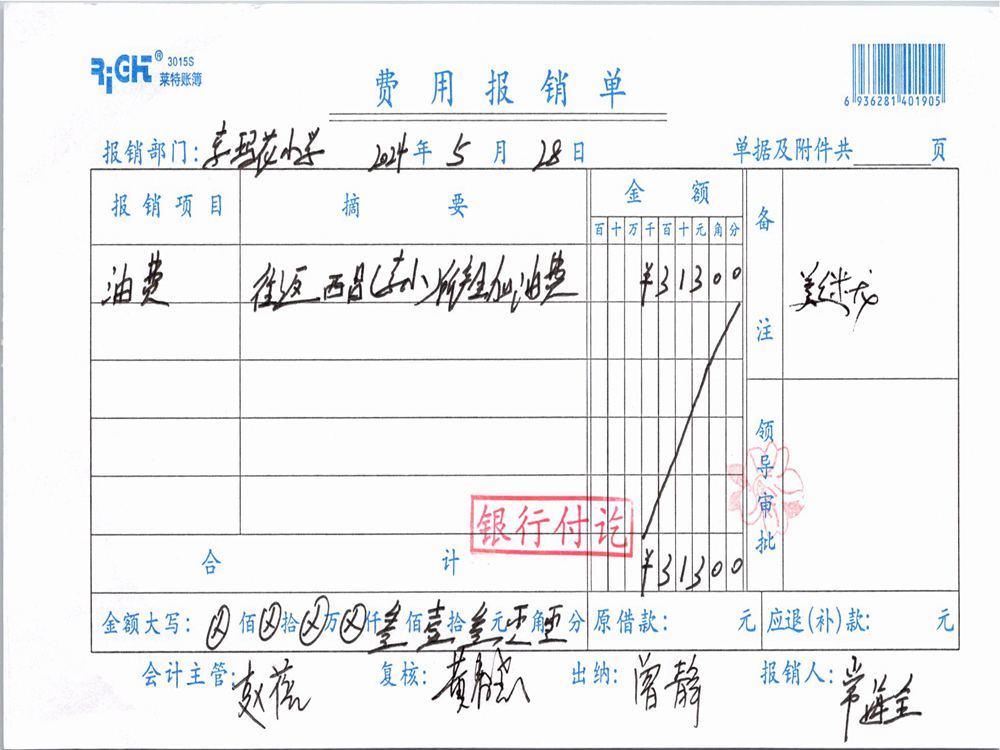 RiGHT® 3015S
莱特账簿
费用报销单
6 936281 401905
报销部门：李玛花小学 2024年5月28日 单据及附件共 页
报销项目 摘要 金额 备注
百十万千百十元角分
油费 往返西昌(李小 油费 ¥31300
姜继龙
领导审批
银行付讫
合计 ¥31300
金额大写：⊗佰⊗拾⊗万⊗仟叁佰壹拾叁元零角零分 原借款： 元 应退(补)款： 元
会计主管：赵蓓 复核：黄 出纳：曾静 报销人：常海全